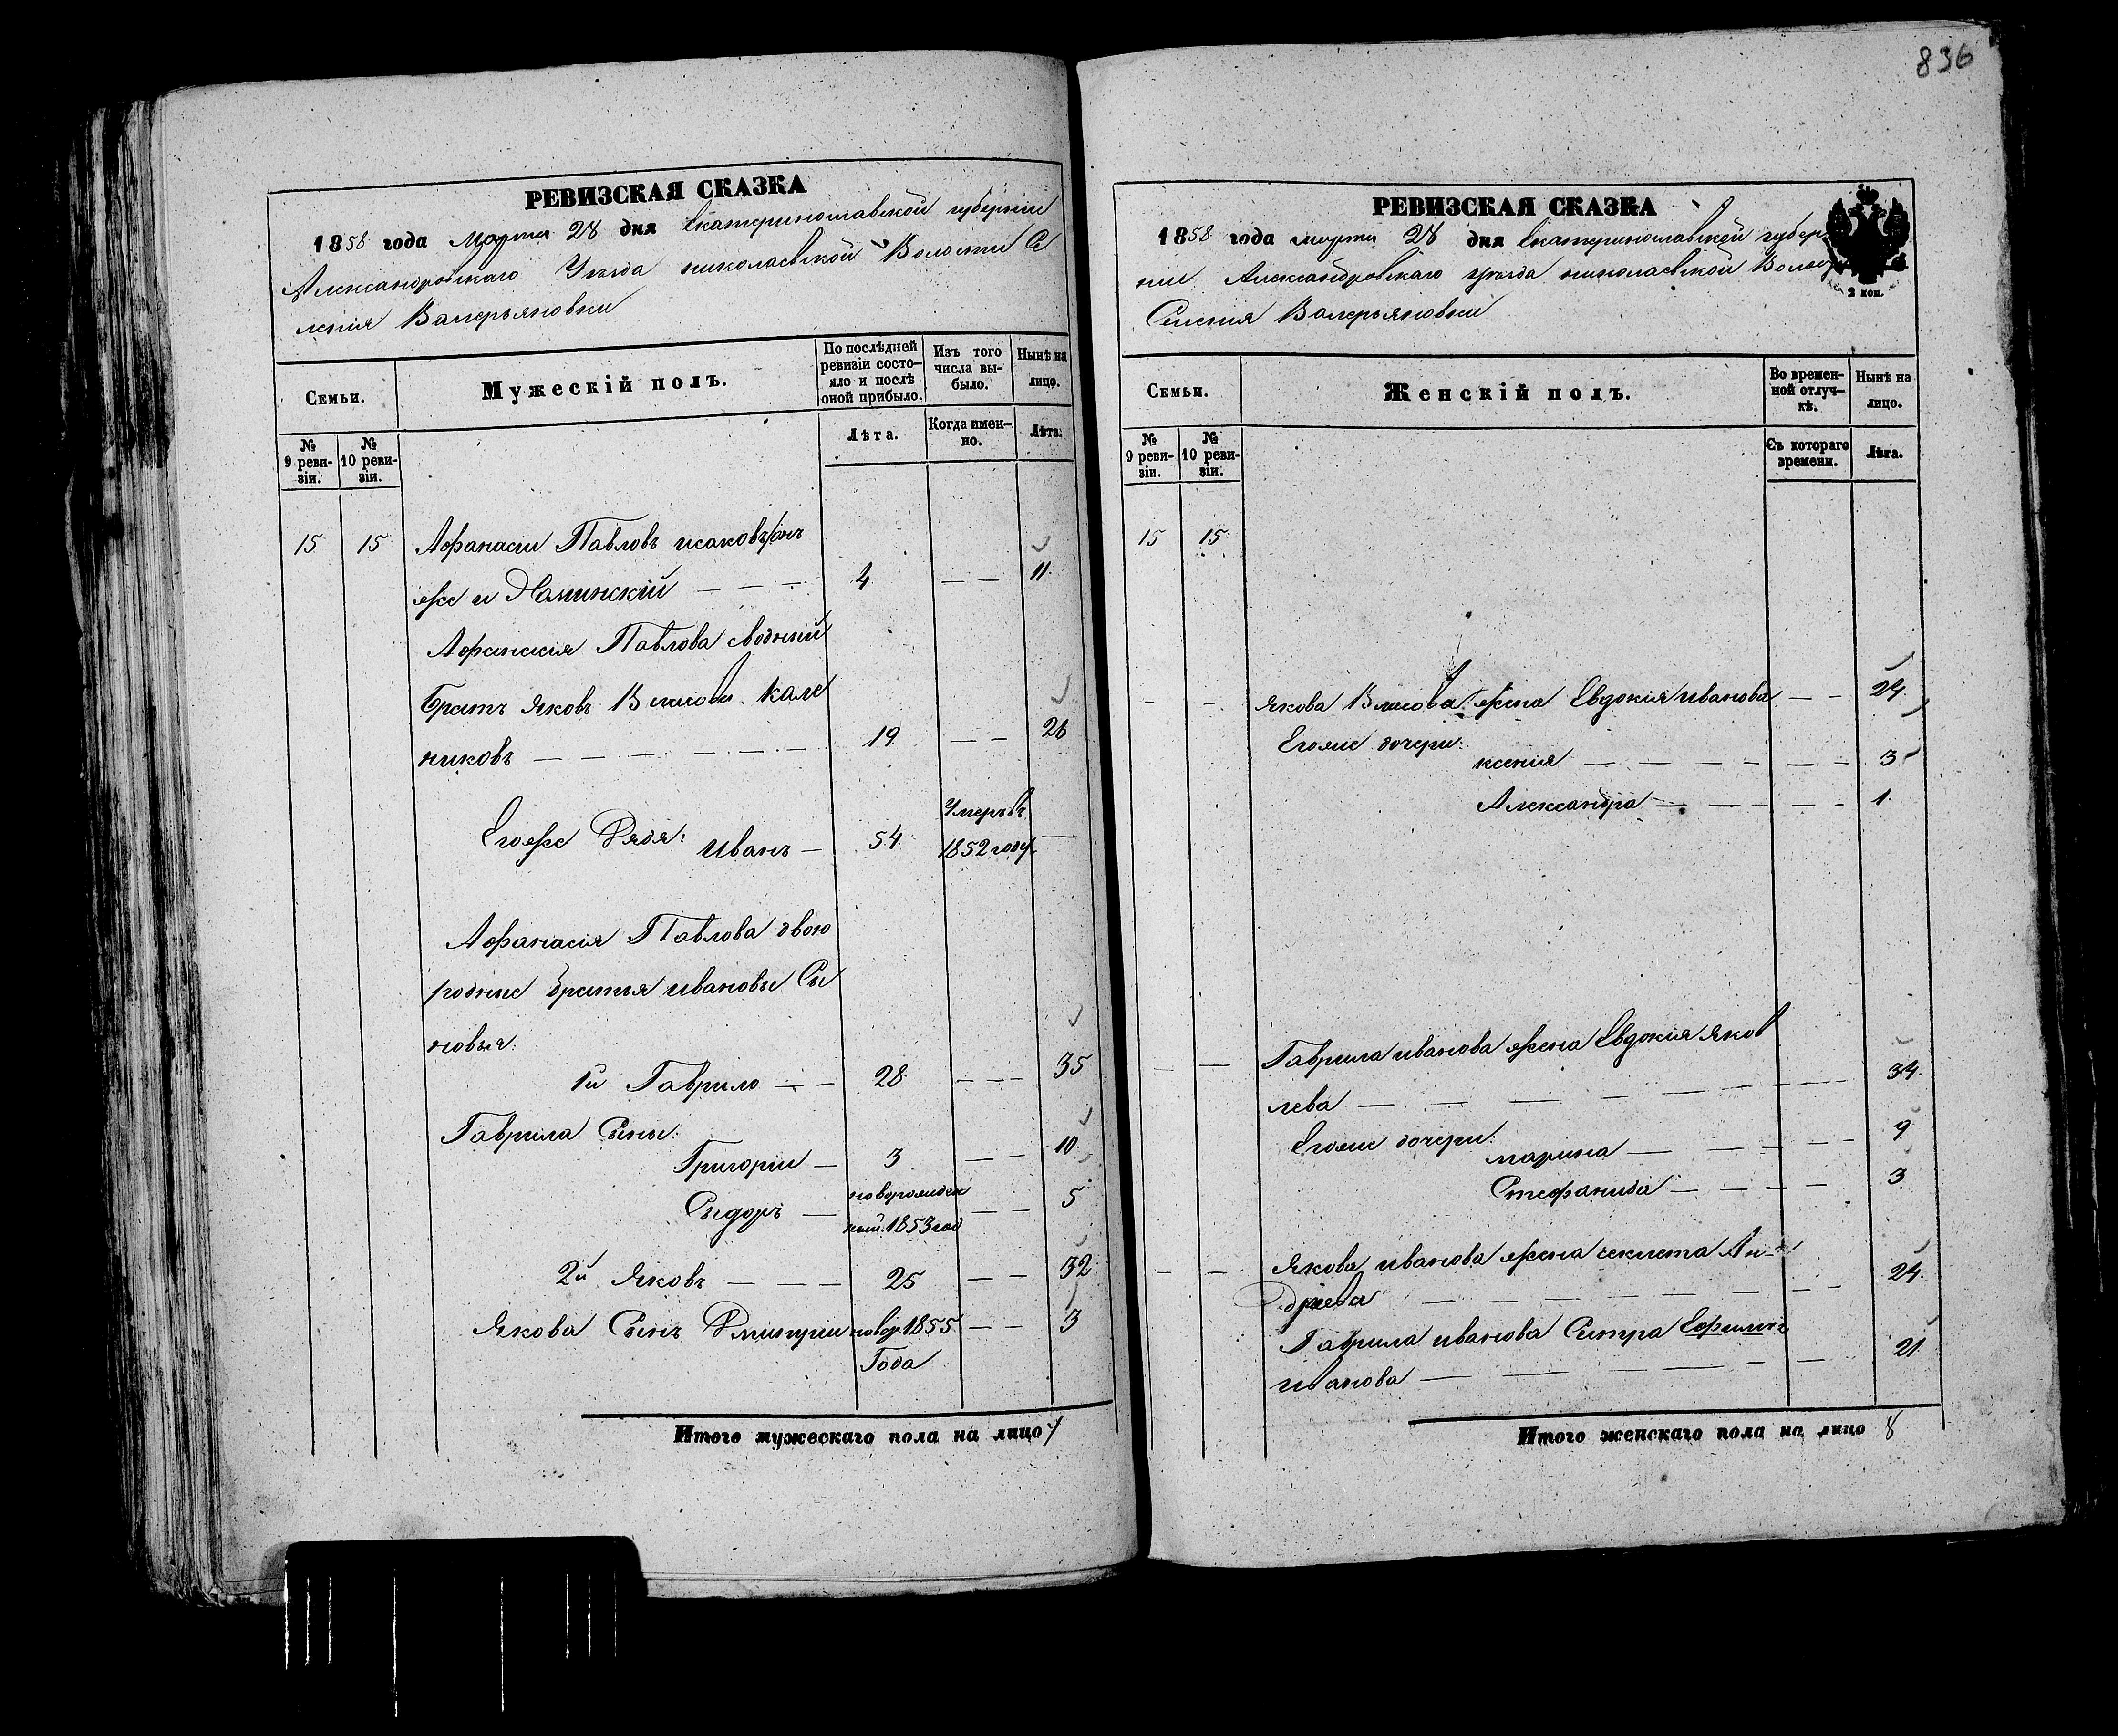 836
РЕВИЗСКАЯ СКАЗКА
1858 года Марта 28 дня Екатеринославской губернии
Александровскаго Уезда николаевской Волости Се
ления Валерьяновки
Семьи.
Мужескій полъ.
По послѣдней ревизіи состо-
яло и послѣ
оной прибыло.
Изъ того
числа вы-
было.
Нынѣ на
лицо.
№
9 реви-
зіи.
№
10 реви-
зіи.
Лѣта.
Когда имен-
но.
Лѣта.
15 15 Афанасіи Павловъ исаковъ/онъ
же и 4 — — 11
Афанасія Павлова сводный
Братъ Яковъ Власовъ Кале
никовъ — — — 19 — — 26
Егоже Дядя: Иванъ — 54 Умеръ въ
1852 году —
Афанасія Павлова двою
родные братья ивановы Сы
новья:
1й Гаврило — — 28 — — — 35
Гаврила Сыны:
Григорій — 3 — — 10
Сидоръ — новорожден
ный 1853 год — — 5
2й Яковъ — — — 25 — — 32
Якова Сынъ Дмитрій новор. 1855 — — 3
Года
Итого мужескаго пола на лицо 7
РЕВИЗСКАЯ СКАЗКА
1858 года марта 28 дня Екатеринославской губер
нии Александровскаго уезда николаевской Волости
Селения Валерьяновки
2 коп.
Семьи.
Женскій полъ.
Во времен-
ной отлуч-
кѣ.
Нынѣ на
лицо.
№
9 реви-
зіи.
№
10 реви-
зіи.
Съ котораго
времени.
Лѣта.
15 15
Якова Власова жена Евдокія иванова — — 24
Егоже дочери:
ксенія — — — — 3
Александра — — — — 1
Гаврила иванова жена Евдокія Яков
лева — — — — 34
Егоже дочери:
марина — — — 9
Стефанида — — — 3
Якова иванова жена Ан-
дреева — — — — 24
Гаврила иванова Сестра
иванова — — — 21
Итого женскаго пола на лицо 8